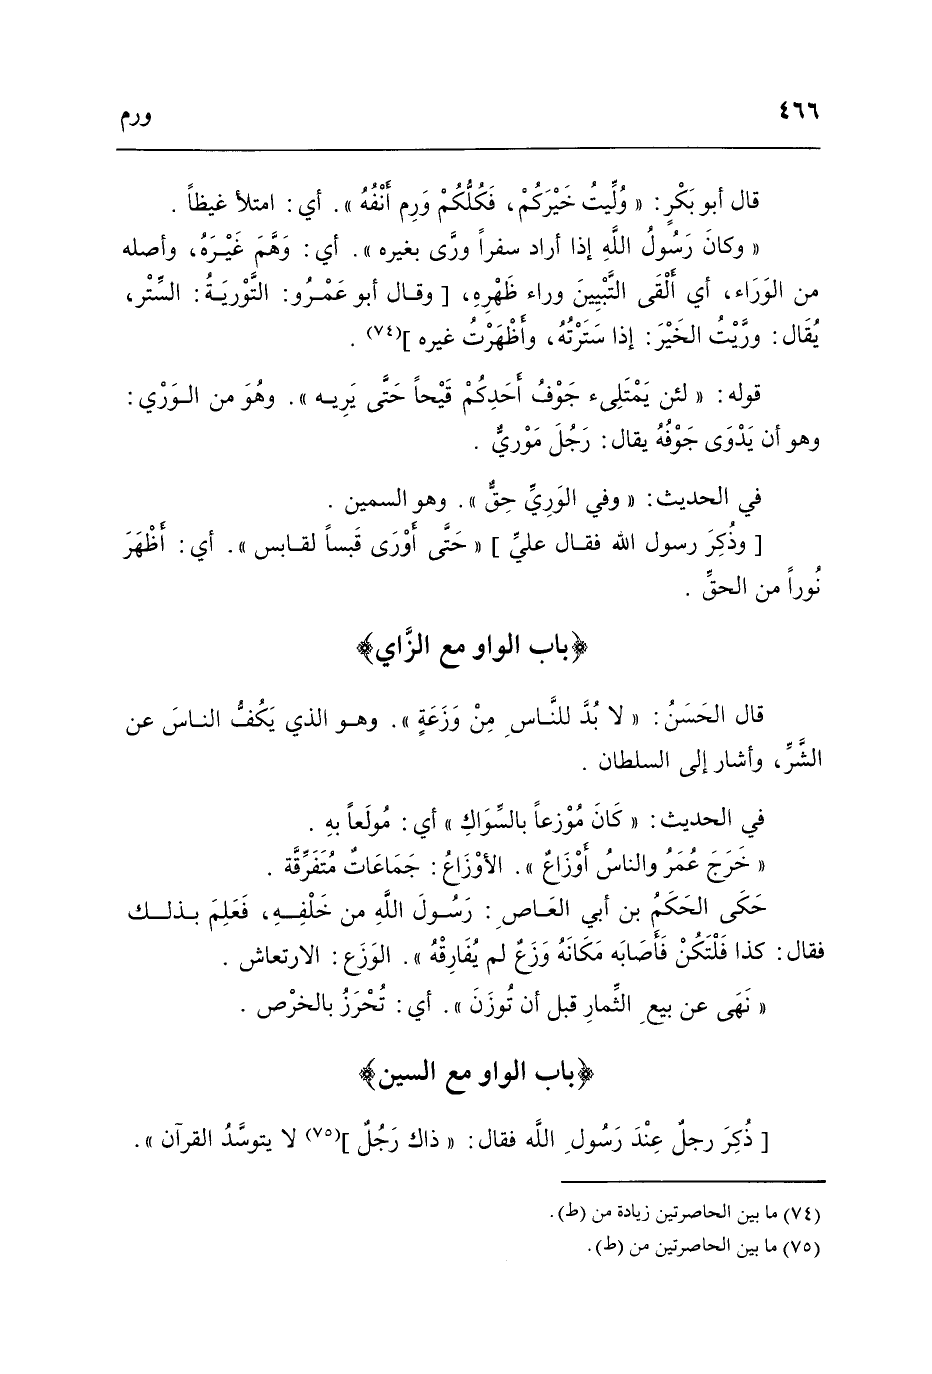 ٤٦٦
ورم
قال أبو بَكْرٍ : « وُلِّيتُ خَيْرَكُمْ ، فَكُلُّكُمْ وَرِم أَنْفُهُ » . أي : امتلأ غيظاً .
« وكانَ رَسُولُ اللَّهِ إذا أراد سفراً ورَّى بغيره » . أي : وَهَّمَ غَيْرَهُ ، وأصله
من الوَرَاء ، أي أَلْقَى التَّبْيِينَ وراء ظَهْرِهِ ، [ وقال أبو عَمْرُو : التَّوْرِيَةُ : السِّتْر ،
يُقَال : ورَّيْتُ الخَيْرَ : إذا سَتَرْتُهُ ، وأَظْهَرْتُ غيره ](٧٤) .
قوله : « لئن يَمْتَلِىء جَوْفُ أَحَدِكُمْ قَيْحاً حَتَّى يَرِيه » . وهُوَ من الوَرْي :
وهو أن يَدْوَى جَوْفُهُ يقال : رَجُلَ مَوْرِيٌّ .
في الحديث : « وفي الوَرِيِّ حِقٌّ » . وهو السمين .
[ وذُكِرَ رسول الله فقال عليِّ ] « حَتَّى أوْرَى قَبساً لقابس » . أي : أَظْهَرَ
نُوراً من الحقِّ .
﴿باب الواو مع الزَّاي﴾
قال الحَسَنُ : « لا بُدَّ للنَّاسِ مِنْ وَزَعَةٍ » . وهو الذي يَكُفُّ الناسَ عن
الشَّرِّ ، وأشار إلى السلطان .
في الحديث : « كَانَ مُوْزعاً بالسِّوَاكِ » أي : مُولَعاً بهِ .
« خَرَجَ عُمَرُ والناسُ أَوْزَاعٌ » . الأوْزَاعُ : جَمَاعَاتٌ مُتَفَرِّقَّة .
حَكَى الحَكَمُ بن أبي العَاصِ : رَسُولَ اللَّهِ من خَلْفِهِ ، فَعَلِمَ بذلك
فقال : كذا فَلْتَكُنْ فَأَصَابَه مَكَانَهُ وَزَعٌ لم يُفَارِقْهُ » . الوَزَع : الارتعاش .
« نَهَى عن بيعِ الثِّمارِ قبل أن تُوزَنَ » . أي : تُحْرَزُ بالخرْص .
﴿باب الواو مع السين﴾
[ ذُكِرَ رجلٌ عِنْدَ رَسُولِ اللَّه فقال : « ذاك رَجُلٌ ](٧٥) لا يتوسَّدُ القرآن » .
(٧٤) ما بين الحاصرتين زيادة من (ط) .
(٧٥) ما بين الحاصرتين من (ط) .